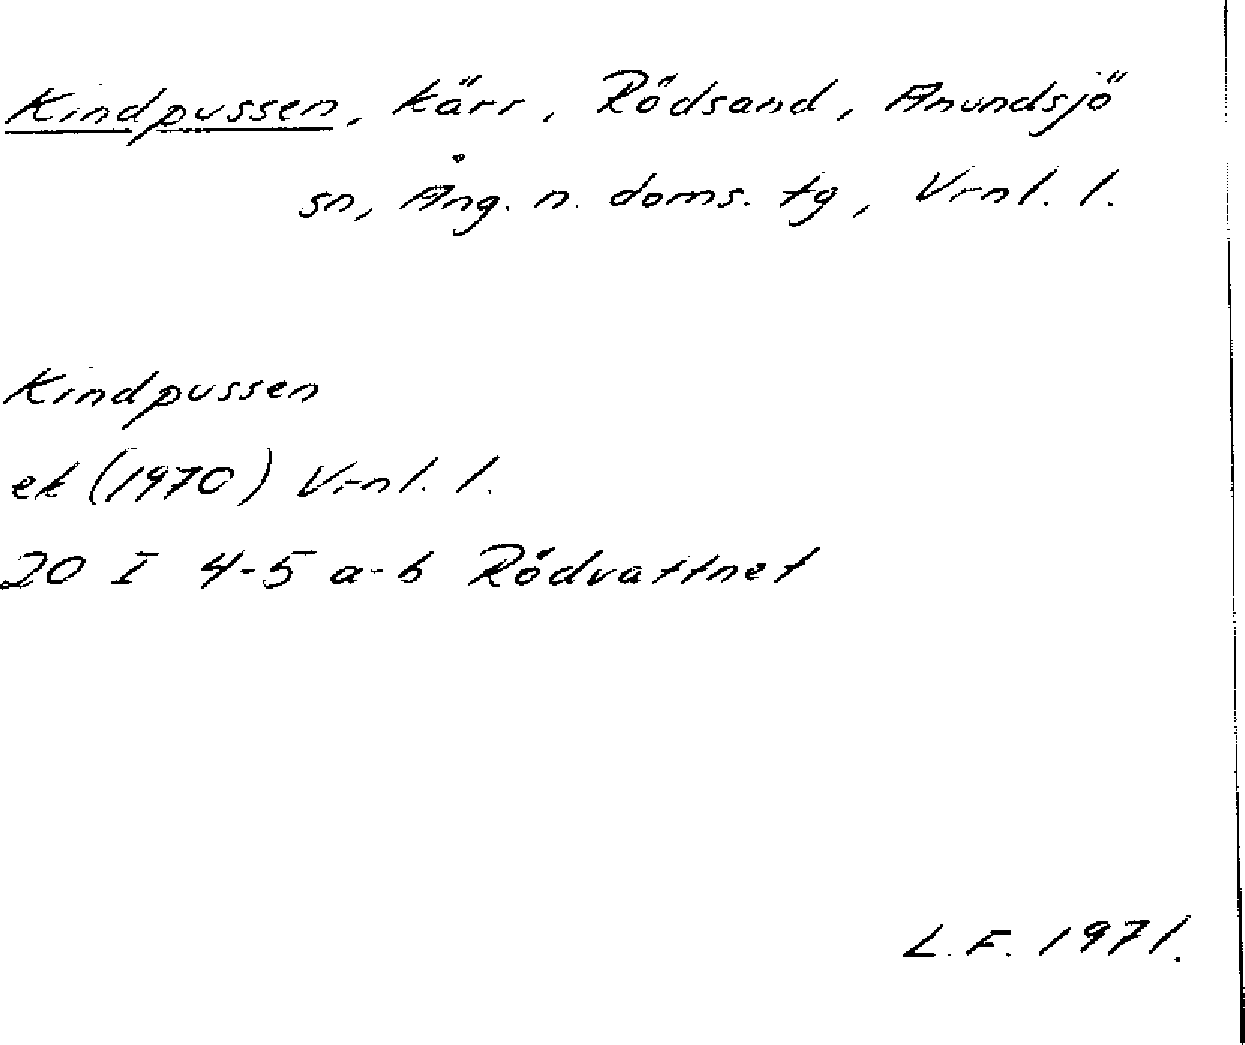 Kindpussen, kärr, Rödsand, Anundsjö
sn, Ång. n. doms. tg, Vrnl. l.
Kindpussen
ek (1970) Vrnl. l.
20 I 4-5 a-b Rödvattnet
L. F. 1971.